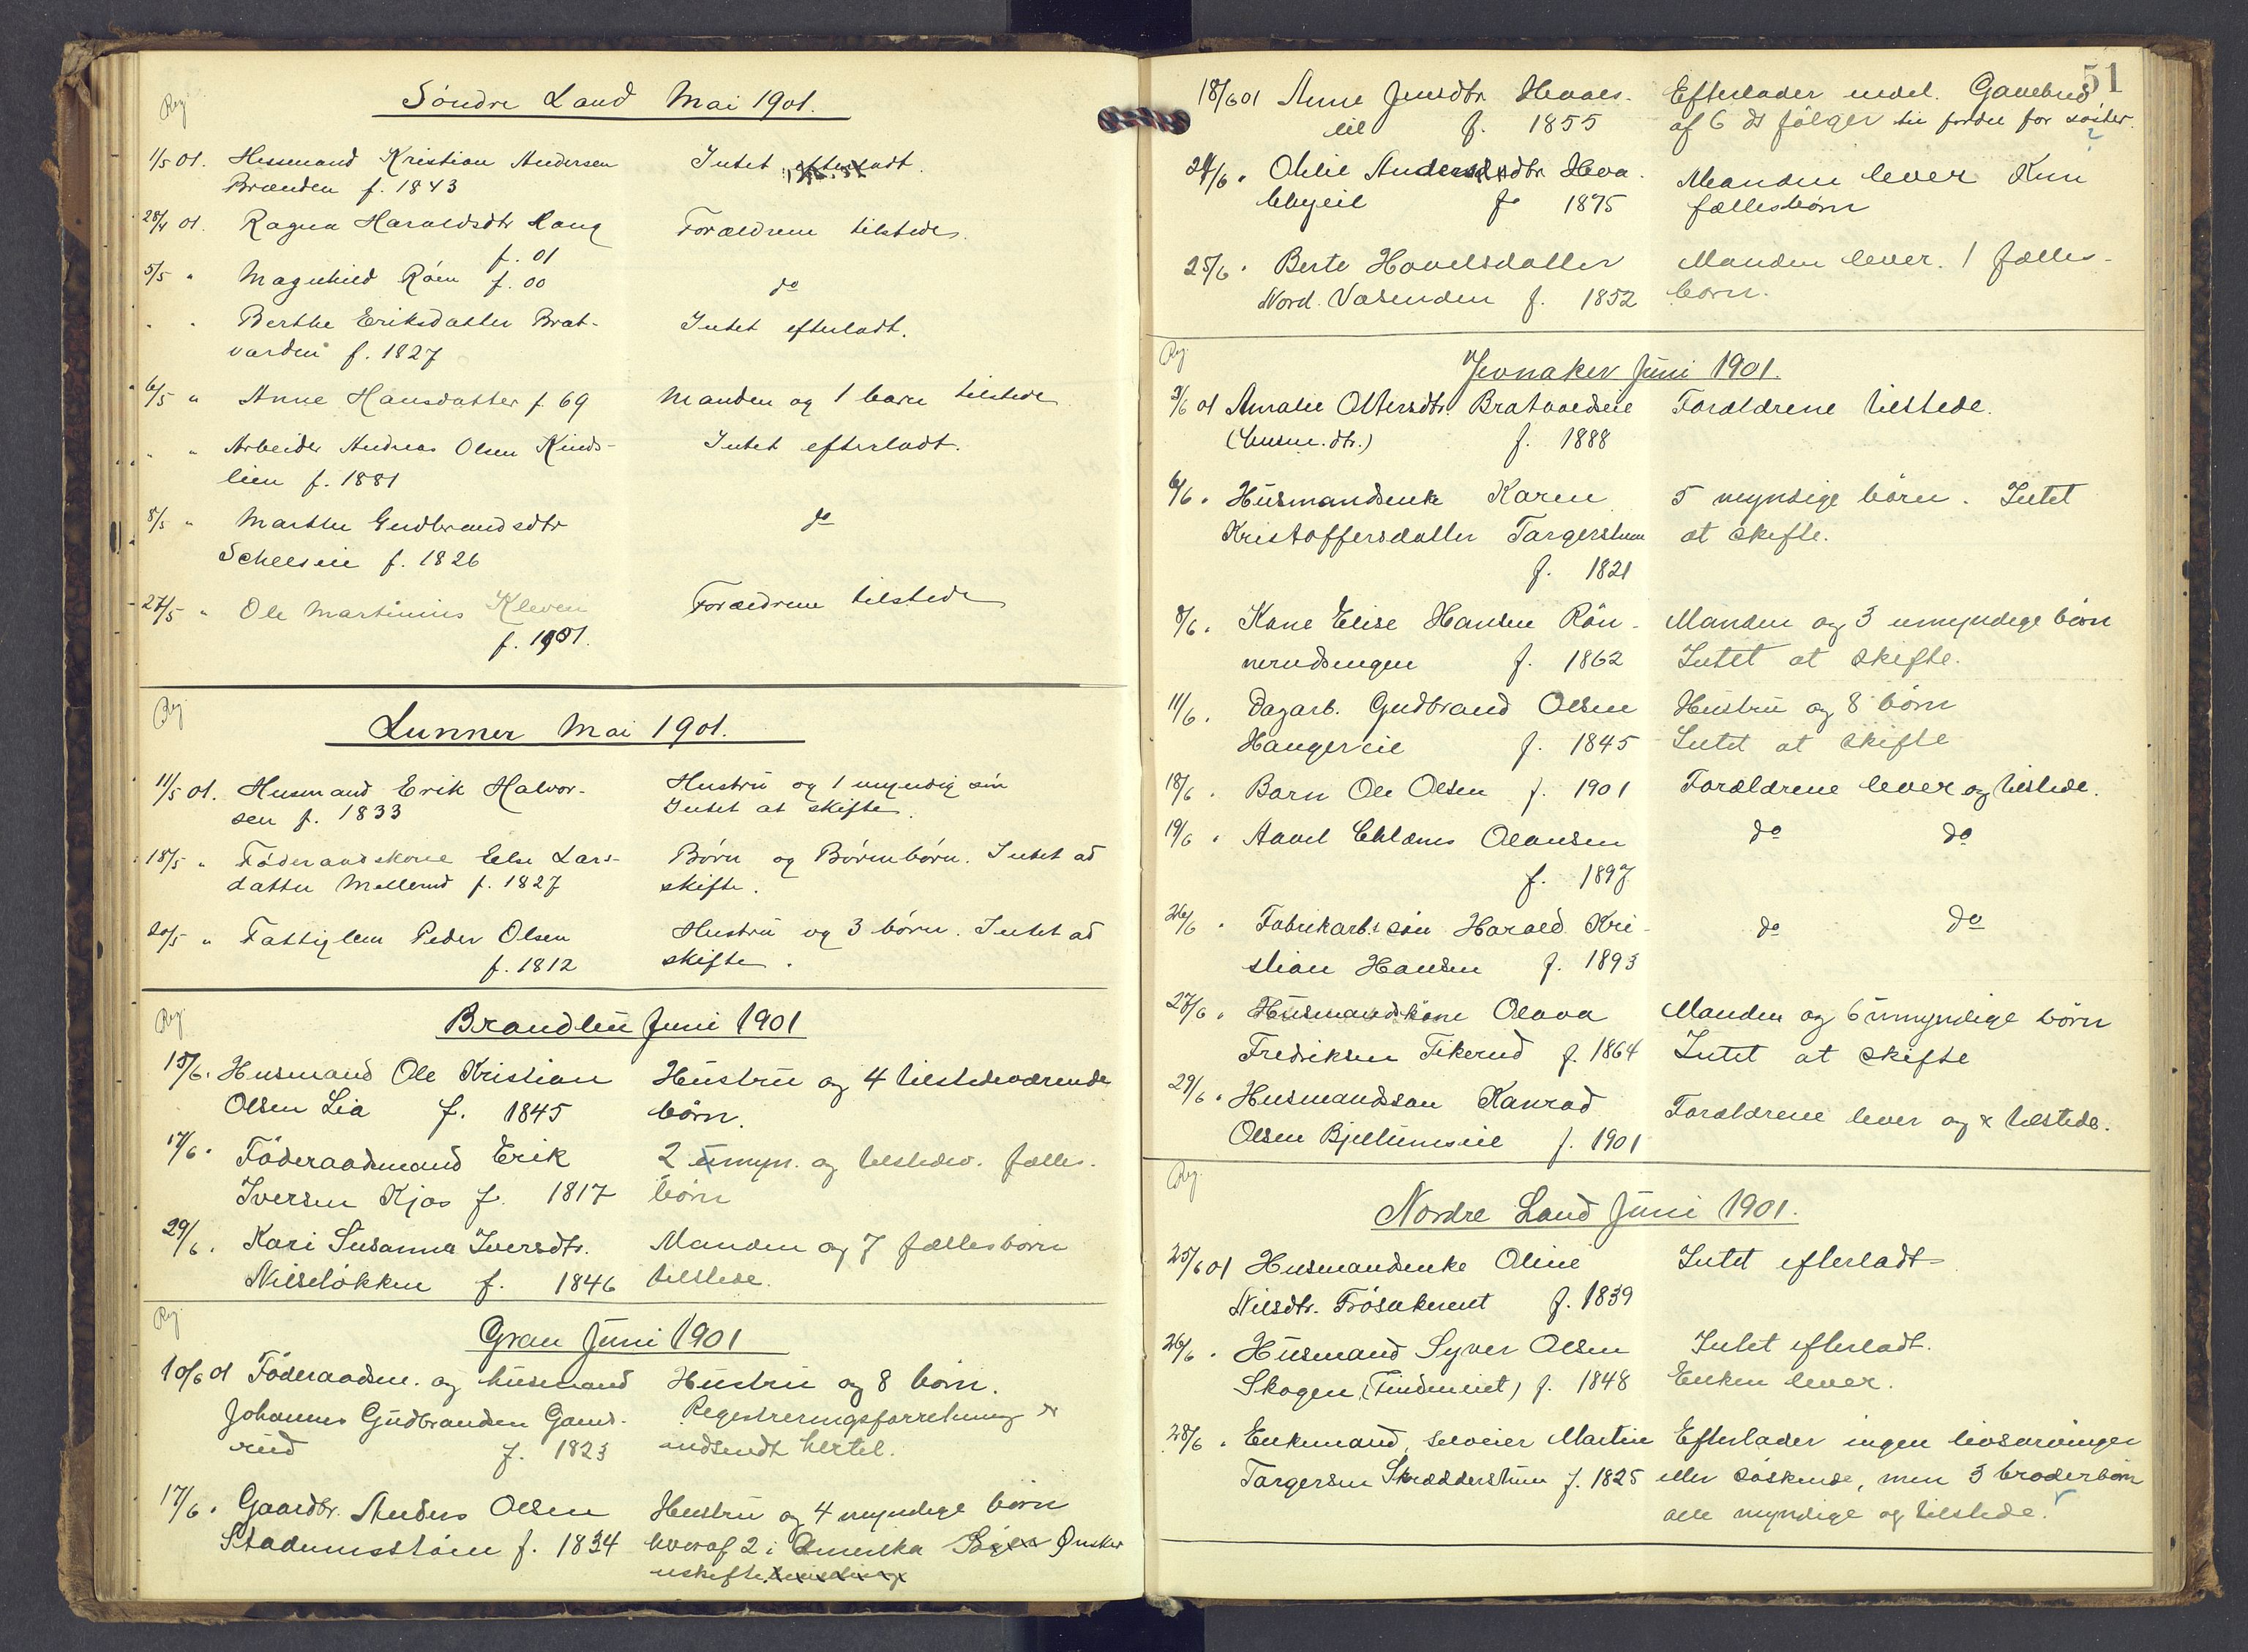 Reg.
Søndre Land Mai 1901.
1/5 01. Husmand Kristian Andersen Intet efterladt.
Brænden f. 1843
28/4 01. Ragna Haraldsdtr Haug Forældrene tilstede.
f. 01
5/5 " Magnhild Røen f. 00 do
" " Berthe Eriksdatter Brat- Intet efterladt.
varden f. 1827
6/5 " Anne Hansdatter f. 69 Manden og 1 barn tilstede
" " Arbeider Andreas Olsen Kinds- Intet efterladt.
lien f. 1881
8/5 " Marthe Gudbrandsdtr do
f. 1826
27/5 " Ole Martinius Kleven Forældrene tilstede
f. 1901.
Reg.
Lunner Mai 1901.
11/5 01. Husmand Erik Halvor- Hustru og 1 myndig søn
sen f. 1833 Intet at skifte.
18/5 " Føderaadskone Else Lars- Børn og Børnebørn. Intet at
datter Møllerud f. 1827 skifte.
20/5 " Fattiglem Peder Olsen Hustru og 3 børn. Intet at
f. 1812 skifte.
Reg.
Brandbu Juni 1901
15/6. Husmand Ole Kristian Hustru og 4 tilstedeværende
Olsen Lia f. 1845 børn.
17/6. Føderaadsmand Erik 2 umyn. og tilstedev. fælles.
Iversen Kjos f. 1817 børn
29/6. Kari Susanna Iversdtr. Manden og 7 fællesbørn
Nilseløkken f. 1846 tilstede.
Reg.
Gran Juni 1901
10/6 01 Føderaadsm. og husmand Hustru og 8 børn.
Johannes Gudbrandsen Registreringsforretning
rud f. 1823 indsendt hertil.
17/6. Gaardbr. Anders Olsen Hustru og 4 myndige børn
Stadumsstøen f. 1834 hvoraf 2 i Amerika Ønsker
uskifte
51
18/6 01 Anne Jensdtr Hvals- Efterlader indel. Gavebrev
lil f. 1855 af 6 ds følger til fordel for søster.
24/6. Othilie Andersdtr Manden lever Kun
f. 1875 fællesbørn
25/6. Berte Hovelsdatter Manden lever. 1 fælles-
Nord. Vasenden f. 1852 barn.
Reg.
Jevnaker Juni 1901.
3/6 01 Amalie Olsersdtr. Bratvoldseie Forældrene tilstede.
(husm. dtr.) f. 1888
6/6. Husmandsenke Karen 5 myndige børn. Intet
Kristoffersdatter Torgerstuen at skifte.
f. 1821
8/6. Kone Elise Hansen Røn- Manden og 3 umyndige børn
nerudsengen f. 1862 Intet at skifte.
11/6. Dagarb. Gudbrand Olsen Hustru og 8 børn
Haugerseie f. 1845 Intet at skifte
18/6. Barn Ole Olsen f. 1901 Forældrene lever og tilstede.
19/6. Olausen do do
f. 1897
26/6. Fabrikarb.s søn Harald Kri- do do
stian Hansen f. 1893
27/6. Husmandskone Olava Manden og 6 umyndige børn
Fredriksen Tikerud f. 1864 Intet at skifte
29/6. Husmandssøn Konrad Forældrene lever og tilstede.
Olsen Bjellumseie f. 1901
Reg.
Nordre Land Juni 1901.
25/6 01 Husmandsenke Oline Intet efterladt
Nilsdtr. f. 1839
26/6. Husmand Syver Olsen Intet efterladt.
Skogen f. 1848 Enken lever.
28/6. Enkemand, selveier Martin Efterlader ingen livsarvinger
Torgersen Skrædderstuen f. 1825 eller søskende, men 3 broderbørn
alle myndige og tilstede.